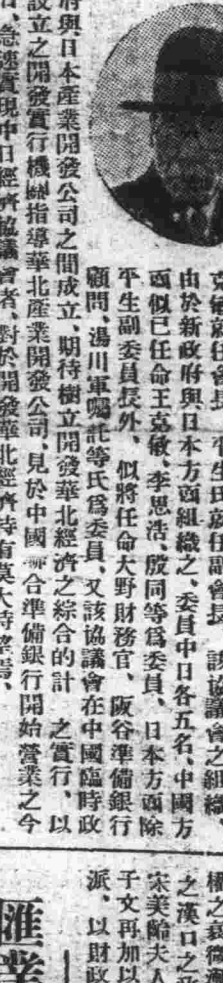 克敏就任會長、平生氏就任副會長、該協議會之組織
由於新政府與日本方面組織之、委員中日各五名、中國方
面似已任命王克敏、李思浩、殷同等爲委員、日本方面除
平生副委員長外、似將任命大野財務官、阪谷準備銀行
顧問、湯川軍囑託等氏爲委員、又該協議會在中國臨時政
府與日本產業開發公司之間成立、期待樹立開發華北經濟之綜合的計 之實行、以
設立之開發實行機關指導華北產業開發公司、見於中國聯合準備銀行開始營業之今
日、急速實現中日經濟協議會者、對於開發華北經濟特有莫大特
之漢口之
宋美齡夫人
子文再加以
派、以財政
匯業